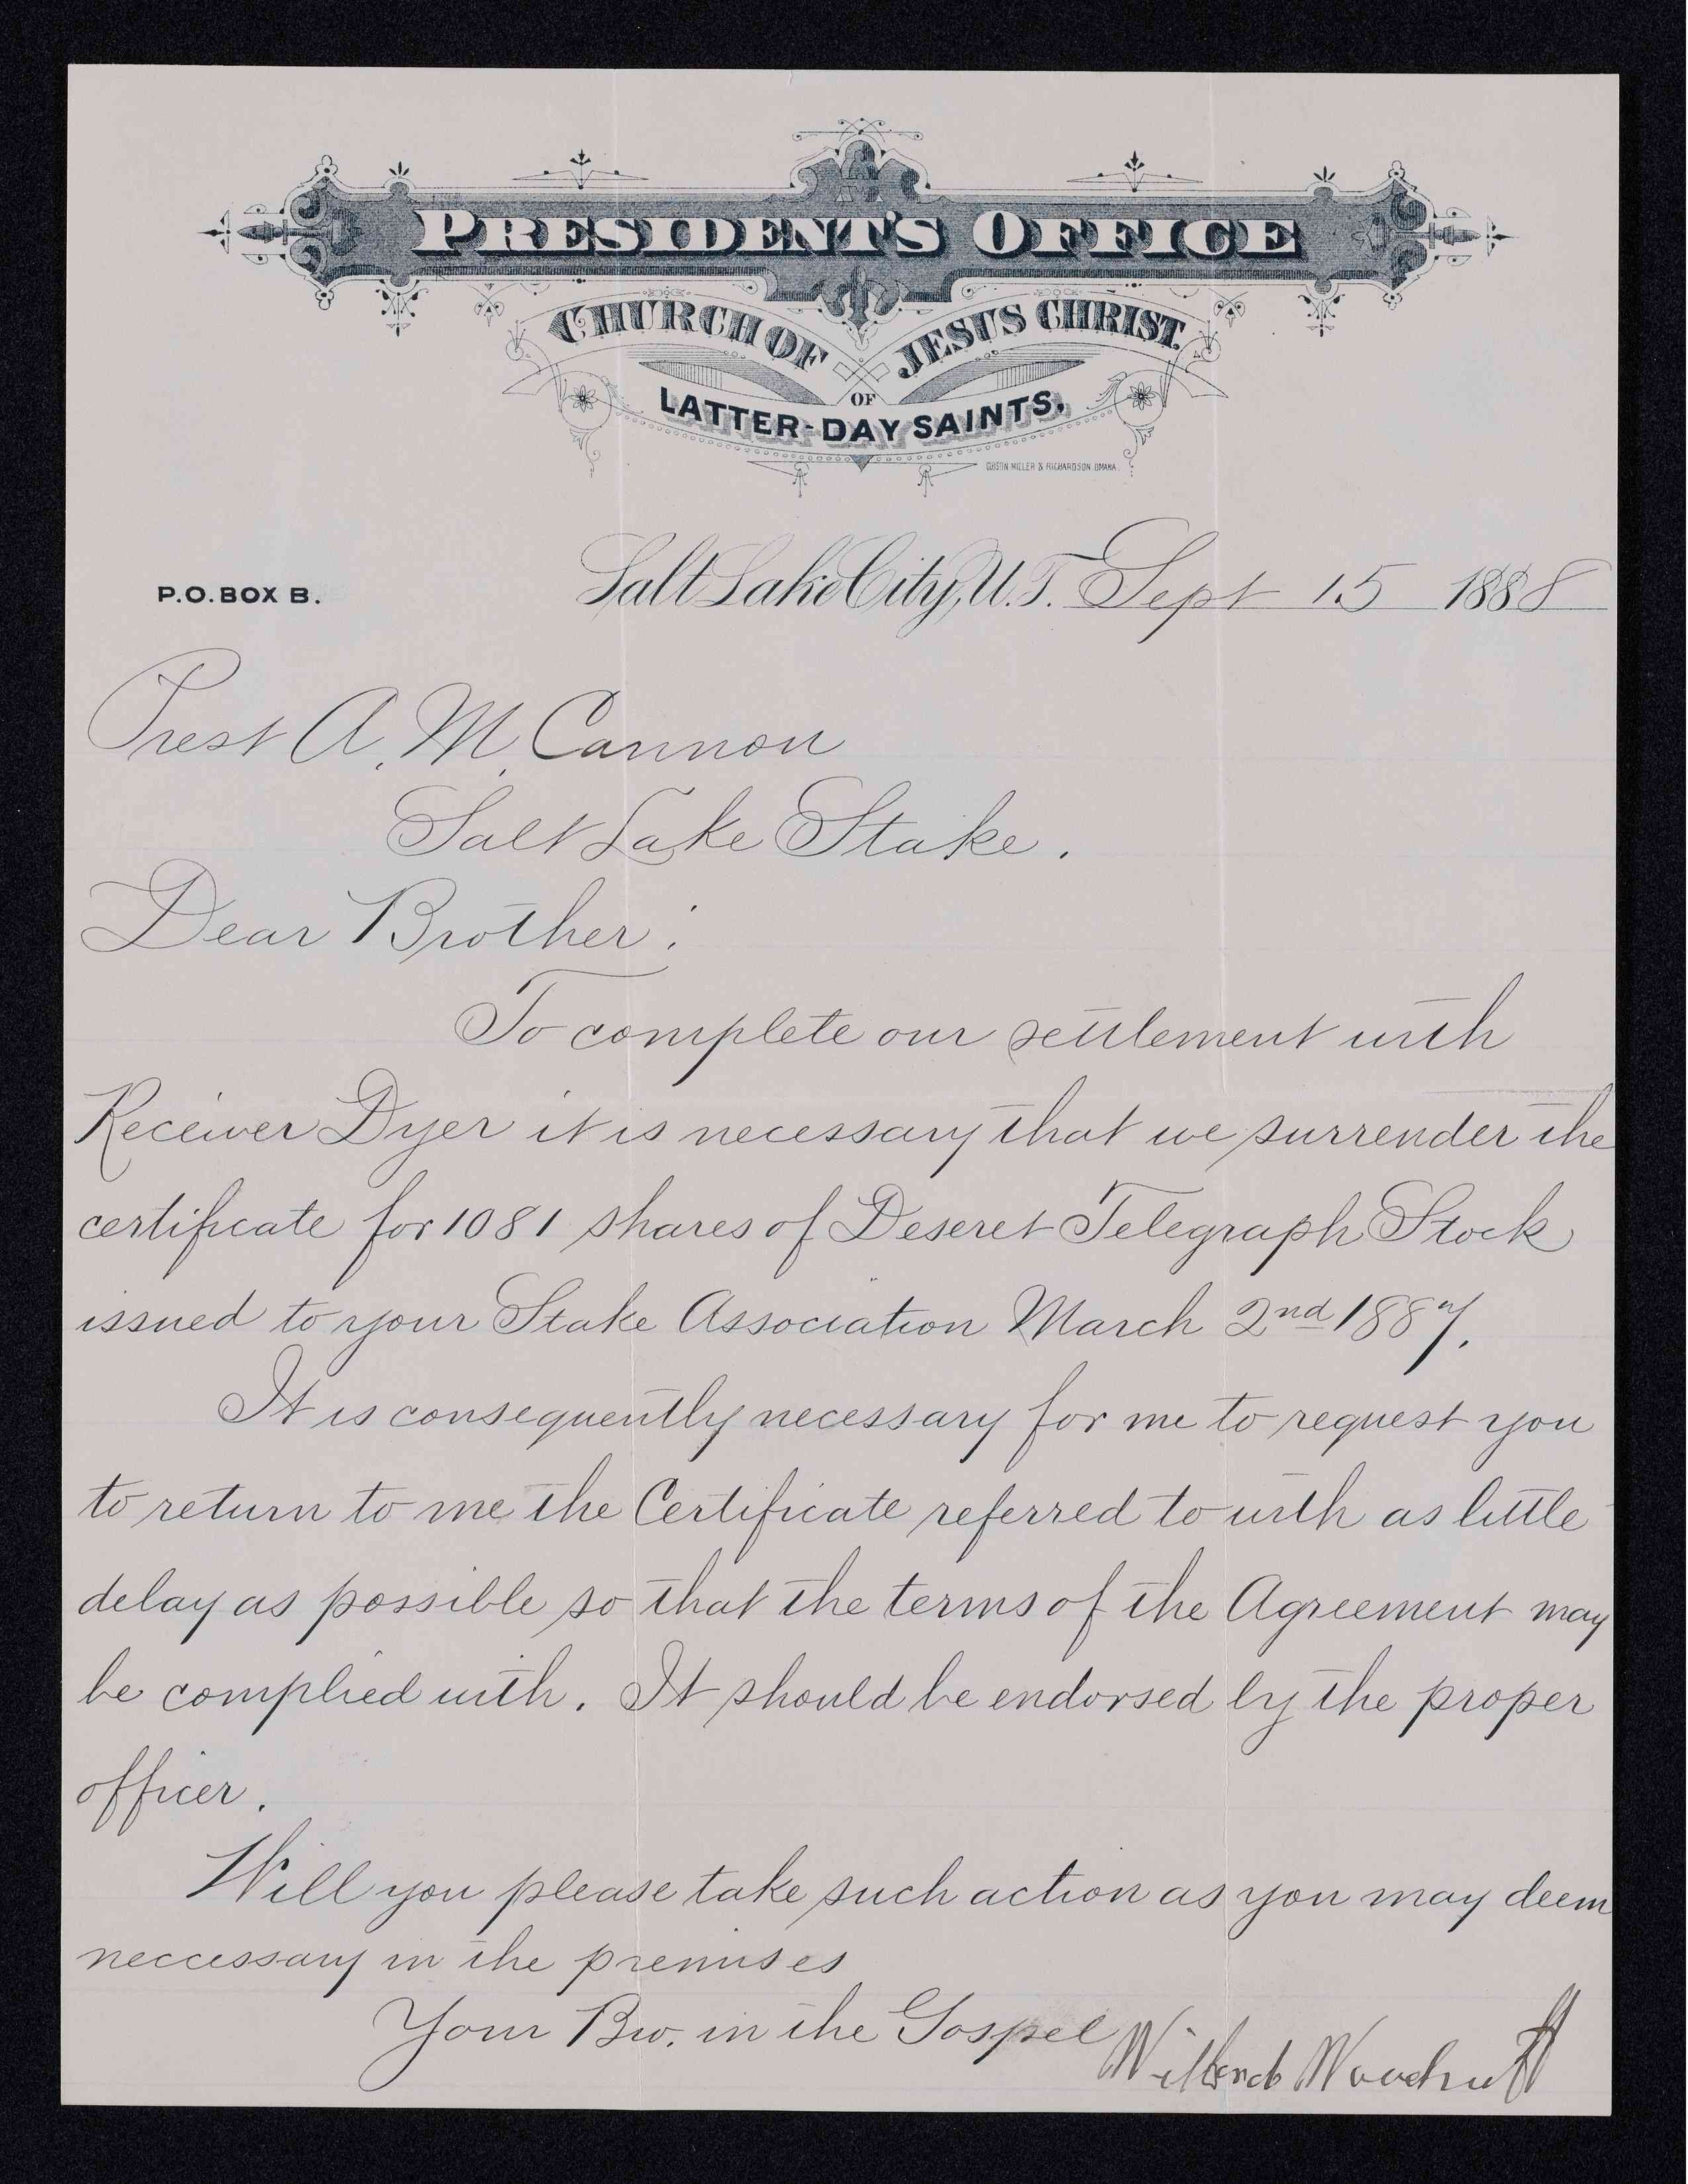 PRESIDENT'S OFFICE
CHURCH OF JESUS CHRIST
OF
LATTER-DAY SAINTS.
GIBSON MILLER & RICHARDSON. OMAHA.
P.O. BOX B.
Salt Lake City, U.T. Sept 15 1888
Prest A. M. Cannon
Salt Lake Stake.
Dear Brother:
To complete our settlement with
Receiver Dyer it is necessary that we surrender the
certificate for 1081 shares of Deseret Telegraph Stock
issued to your Stake Association March 2nd 1887.
It is consequently necessary for me to request you
to return to me the Certificate referred to with as little
delay as possible so that the terms of the Agreement may
be complied with. It should be endorsed by the proper
officer.
Will you please take such action as you may deem
neccessary in the premises
Your Bro. in the Gospel
Wilford Woodruff